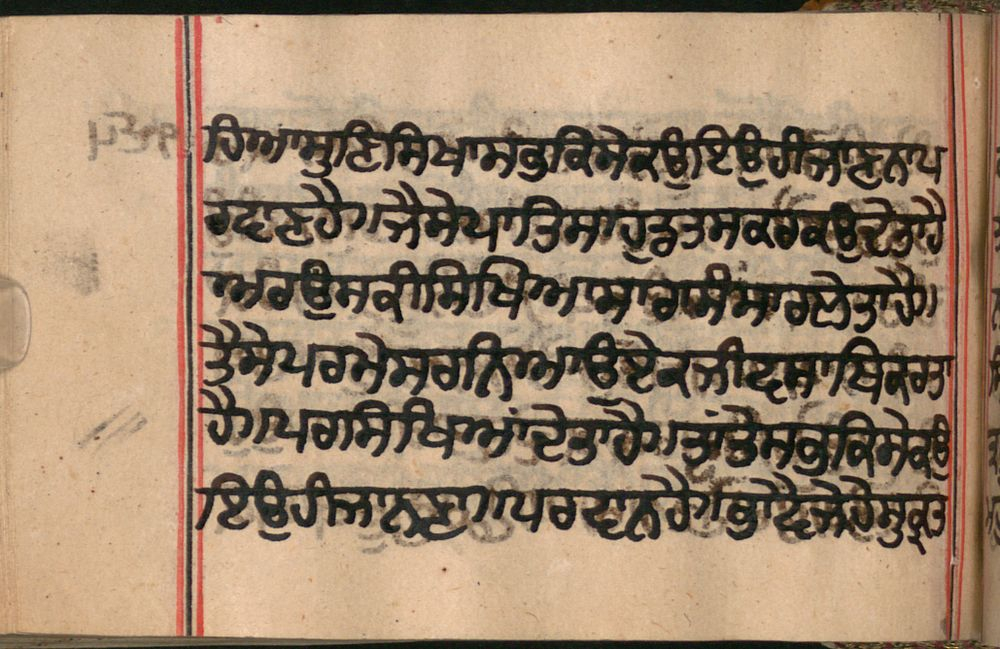 ਹਿਆਸੁਣਿਸਿਖਾਸਭੁਕਿਸੇਕਉਇਉਹੀਜਾਣਨਾਪ
ਰਵਾਣਹੈ॥ਜੈਸੇਪਾਤਿਸਾਹੁਤਸਕਰਕਉਦੇਤਾਹੈ
ਅਰਉਸਕੀਸਿਖਿਆਸਾਰਾਸੰਸਾਰਲੇਤਾਹੈ॥
ਤੈਸੇਪਰਮੇਸਰਗਨਿਆਉਏਕਜੀਵਸਾਥਿਕਰਤਾ
ਹੈ॥ਪਰਾਸਿਖਿਆਂਦੇਤਾਹੈ॥ਤਾਂਤੈਸਭੁਕਿਸੇਕਉ
ਇਉਹੀਜਾਨਣਾ॥ਪਰਵਾਨਹੈ॥ਭਾਵੈਜੇਹੇਸੁਕ੍ਰਤ